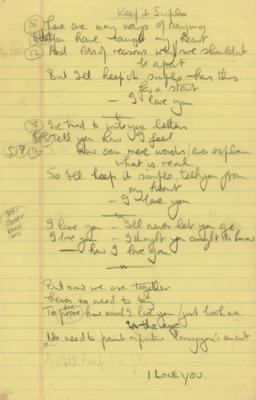 Keep it Simple
There are many ways of saying
You have taught my heart
And lots of reasons why we shouldn't
be apart
But I'll keep it simple - has this
for a start
- I love you
I've tried to write you letters
To tell you how I feel
how can mere words ever explain
what is real
So I'll keep it simple, tell you from
my heart
- I love you.
I love you - I'll never let you go
I love you - I thought you ought to know
- how I love you.
But now we are together
There's no need to
To prove how much I love you just look me
in the eye
No need to paint a picture
I LOVE YOU.